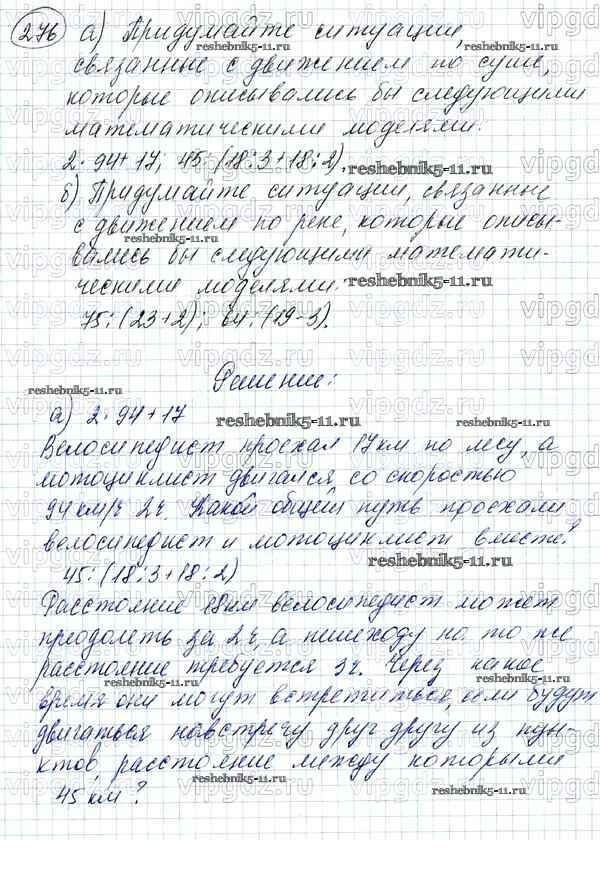 276 а) Придумайте ситуации,
связанные с движением по суше,
которые описывались бы следующими
математическими моделями.
2·94+17; 45:(18:3+18:2).
б) Придумайте ситуации, связанные
с движением по реке, которые описы-
вались бы следующими математи-
ческими моделями.
75:(23+2); 64:(19-3).
Решение:
а) 2·94+17
Велосипедист проехал 17 км по лесу, а
мотоциклист двигался со скоростью
94 км/ч 2 ч. Какой общий путь проехали
велосипедист и мотоциклист вместе?
45:(18:3+18:2)
Расстояние 18 км велосипедист может
преодолеть за 2 ч, а пешеходу на то же
расстояние требуется 3 ч. Через какое
время они могут встретиться, если будут
двигаться навстречу друг другу из пун-
ктов, расстояние между которыми
45 км?
reshebnik5-11.ru
vipgdz.ru